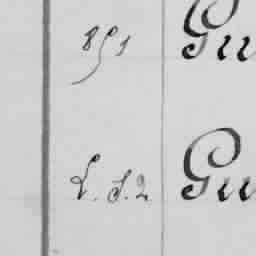 851 Gu
L. S. 2 Gu